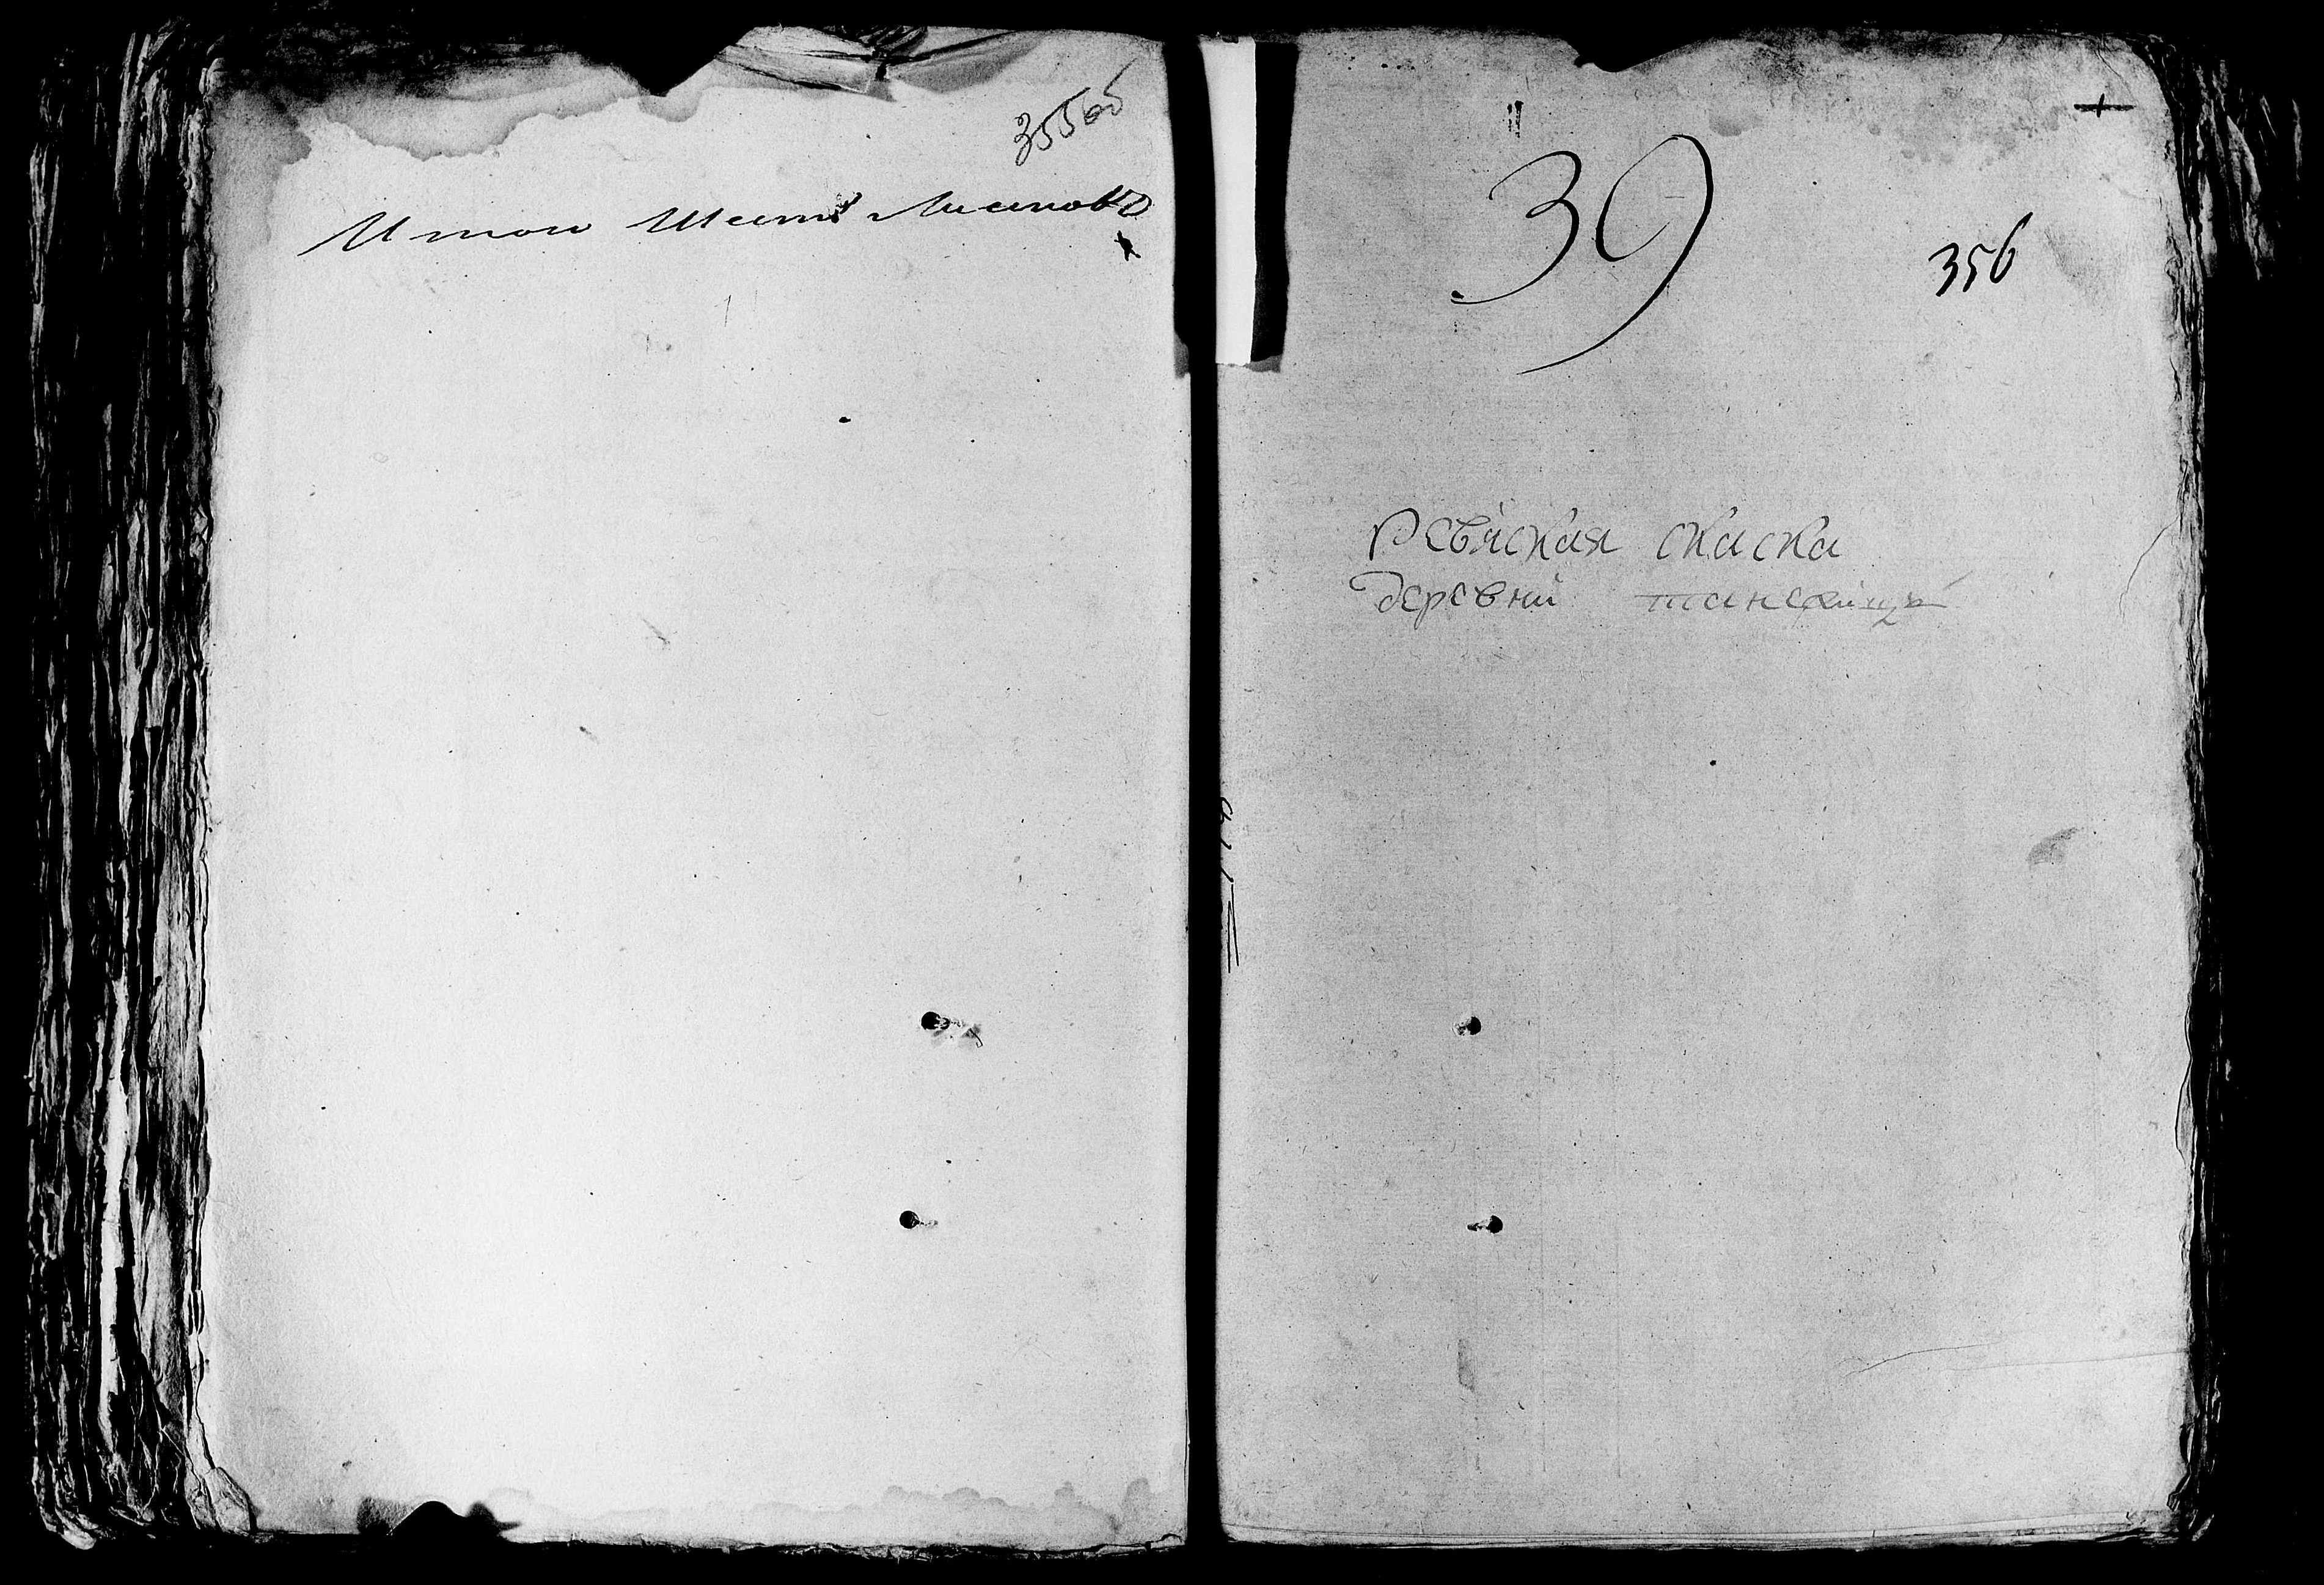 355об
Итого Шесть Листовъ
39
356
Ревиская скаска
деревни